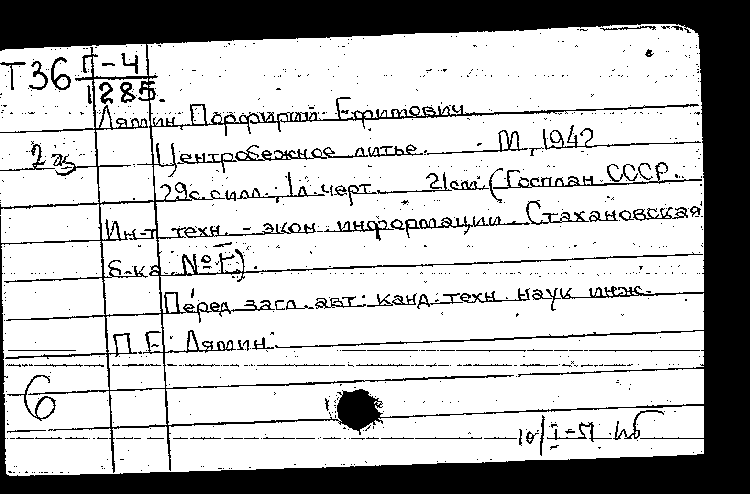 Т36 Г-4
1285.
Лямин, Порфирий Ефимович
2 Центробежное литье. - М, 1942
29с. с илл.; 1л. черт. 21см. (Госплан СССР.
Ин-т техн. - экон. информации. Стахановская
б-ка №
Перед загл. авт: канд. техн. наук инж.
П. Е. Лямин.
6
10/I-51